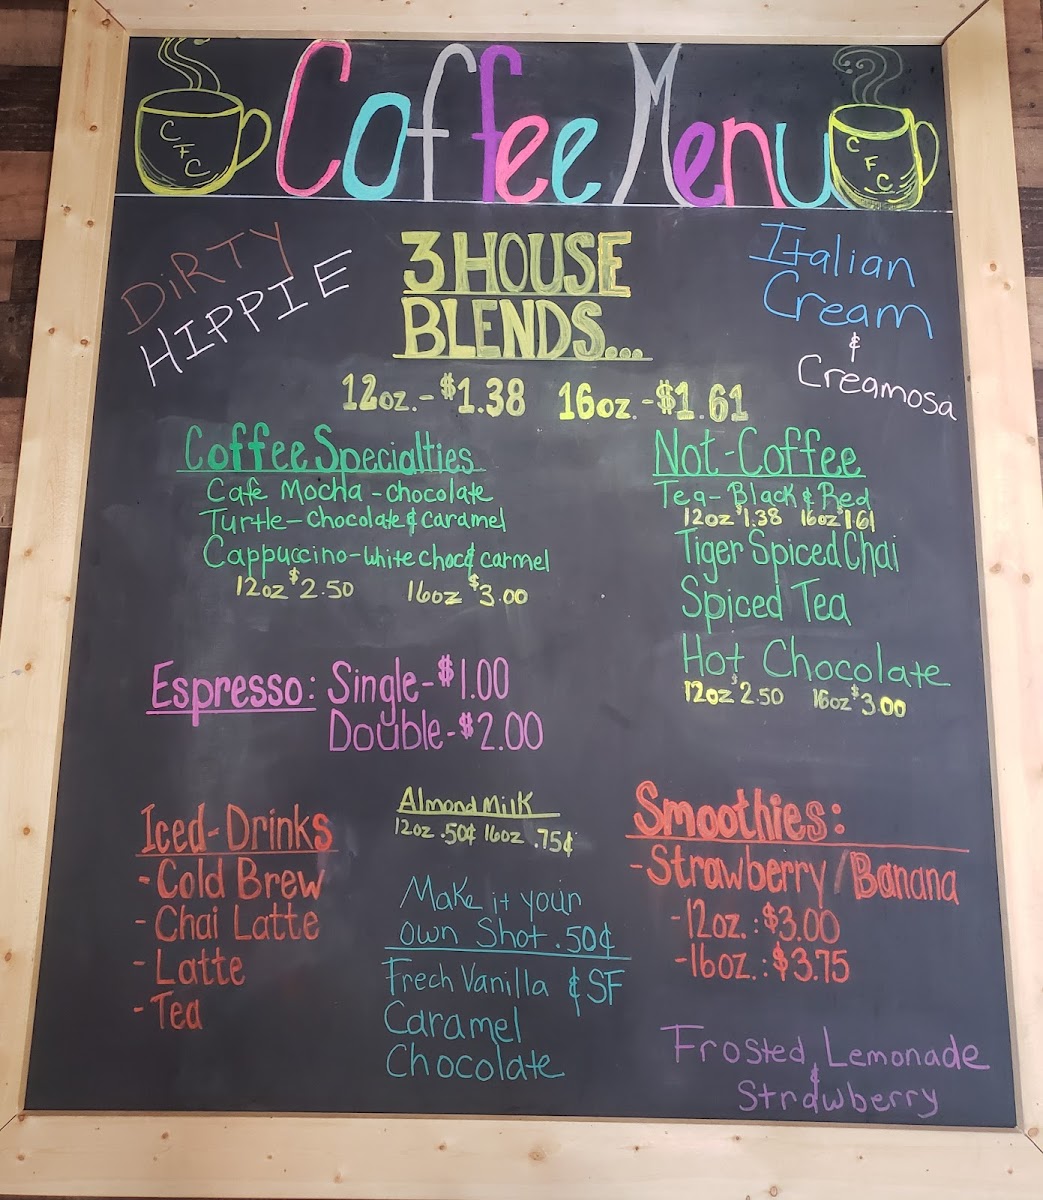 CFC
Coffee Menu
CFC
DiRTY
HIPPIE
3 HOUSE
BLENDS...
Italian
Cream
&
Creamosa
12oz.-$1.38 16oz.-$1.61
Coffee Specialties
Cafe Mocha-chocolate
Turtle-Chocolate & Caramel
Cappuccino-white choc & carmel
12oz $2.50 16oz $3.00
Not-Coffee
Tea-Black & Red
12oz $1.38 16oz $1.61
Tiger Spiced Chai
Spiced Tea
Hot Chocolate
12oz $2.50 16oz $3.00
Espresso: Single-$1.00
Double-$2.00
Iced-Drinks
-Cold Brew
-Chai Latte
-Latte
-Tea
Almond Milk
12oz .50¢ 16oz .75¢
Make it your
own Shot .50¢
Frech Vanilla & SF
Caramel
Chocolate
Smoothies:
-Strawberry/Banana
-12oz.:$3.00
-16oz.:$3.75
Frosted Lemonade
&
Strawberry